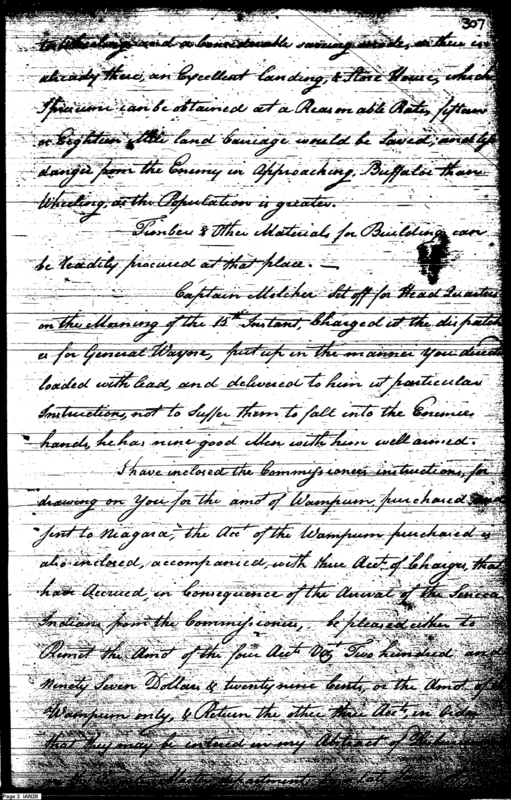 307
to Wheeling and a considerable saving made, as there is
already there, an Excellent landing, & Store House, which
I presume can be obtained at a Reasonable Rate, fifteen
or Eighteen Mile land Carriage would be Saved, and less
danger from the Enemy in Approaching, Buffaloe than
Wheeling, as the Population is greater.
Timber & Other Materials for Building can
be readily procured at that place. —
Captain Melcher Set off for Head Quarters
on the Morning of the 15th Instant, Charged wt the dispatch
es for General Wayne, put up in the manner You directed
loaded with lead, and delivered to him wt particular
Instructions, not to Suffer them to fall into the Enemies
hands, he has nine good Men with him well armed.
I have inclosed the Commissioners instructions, for
drawing on You for the amot of Wampum purchased and
sent to Niagara, the Acct of the Wampum purchased is
also inclosed, accompanied, with three Accts of Charges, that
have Accrued, in Consequence of the Arrival of the Seneca
Indians from the Commissioners, be pleased either to
Remit the Amot of the four Accts Vizt Two hundred and
Ninety Seven Dollars & twenty nine Cents, or the Amot of the
Wampum only, & Return the other three Accts, in Order
that they may be entered in my Abstract of
Page 3 IAN28